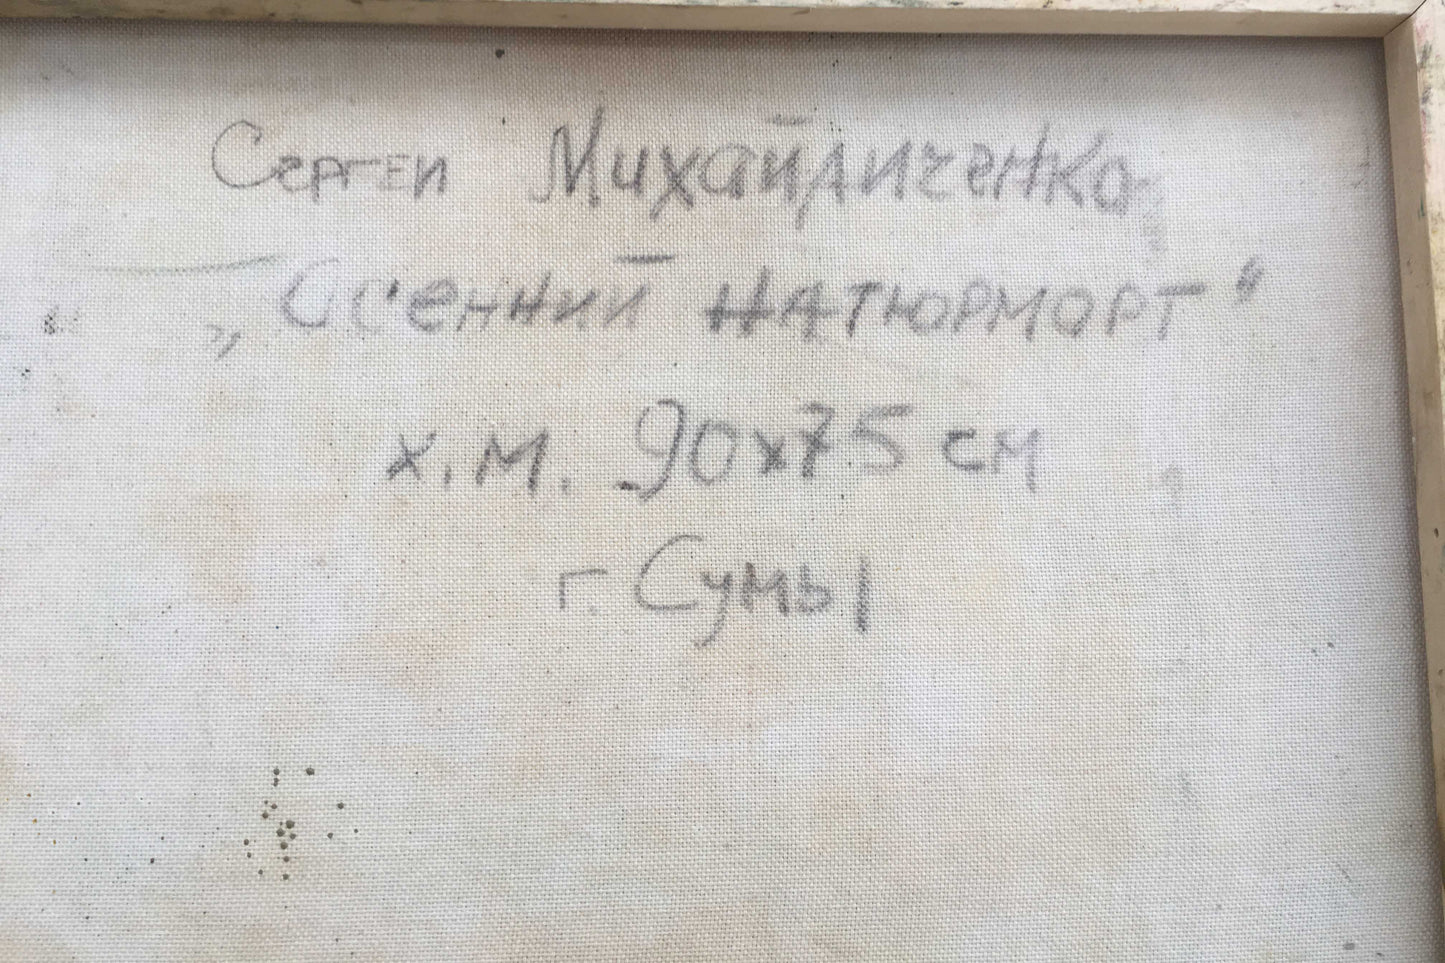 Сергей Михайличенко
„Осенний натюрморт“
х.м. 90х75 см
г. Сумы